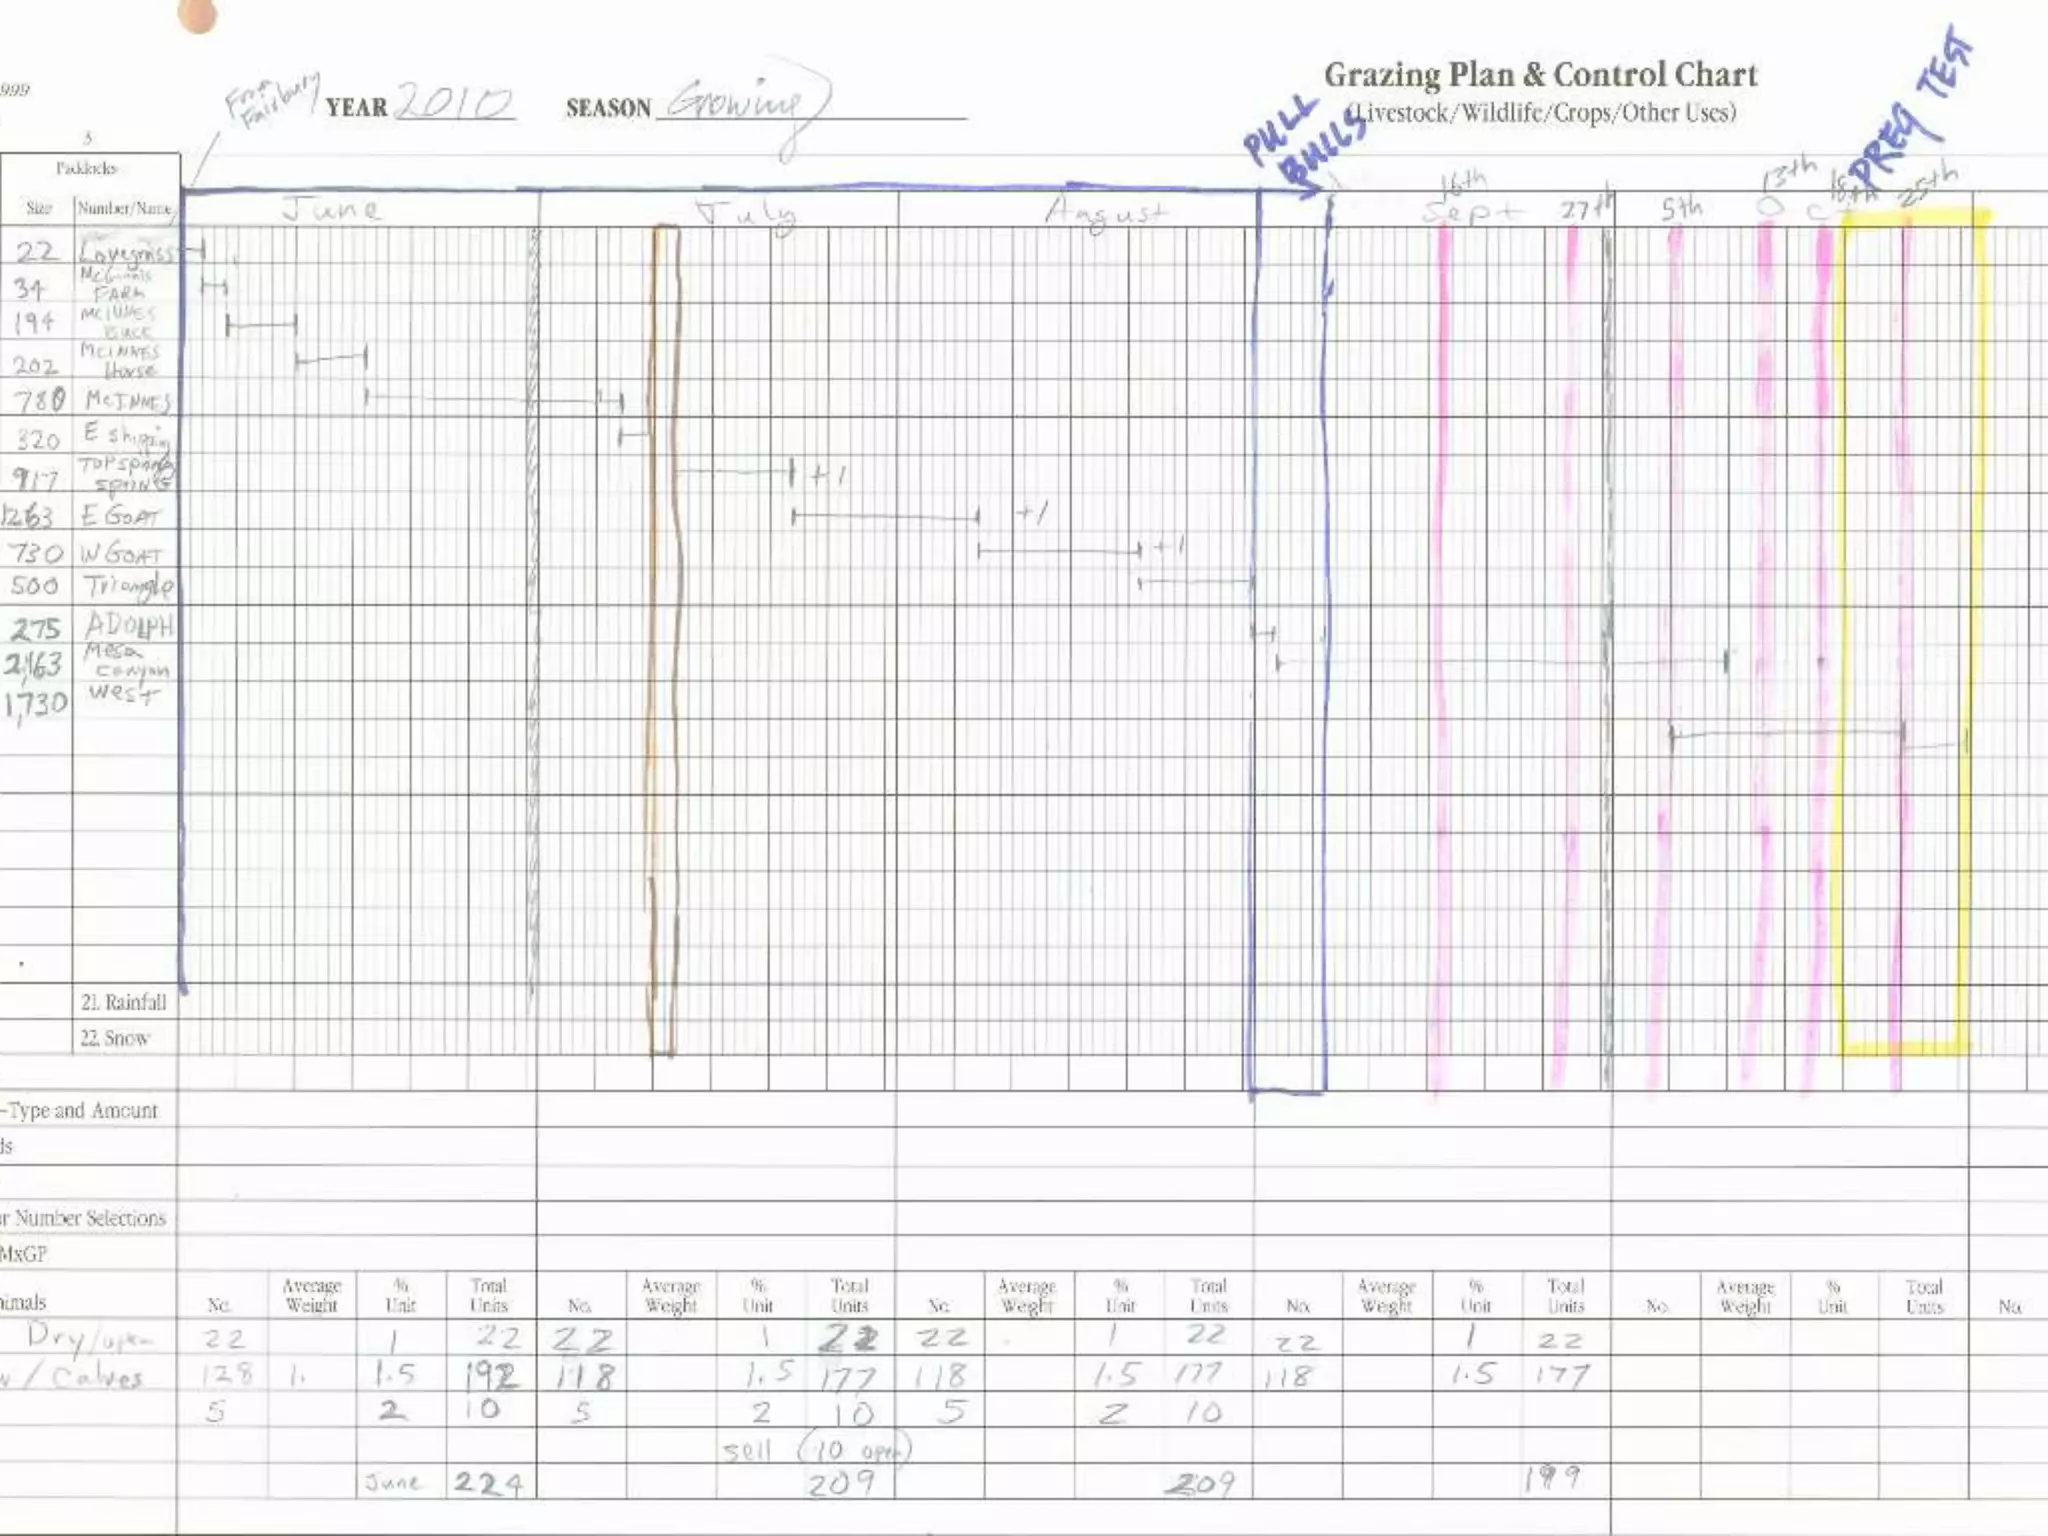 999
From Fairbury
YEAR 2010 SEASON Growing
Grazing Plan & Control Chart
(Livestock/Wildlife/Crops/Other Uses)
PULL BULLS
PREG TEST
3
Paddocks
Size Number/Name June July August 16th Sept 27th 5th 13th Oct 18th 25th
22 Lovegrass
34 McGinnis FARM
194 McINNES
202 McINNES Horse
780 McINNES
320 E Shipping
917 TOP Spring SPRING +1
1263 E GOAT +1
730 W GOAT +1
500 Triangle
275 ADOLPH
2,163 Mesa Canyon
1,730 West
21. Rainfall
22. Snow
-Type and Amount
ds
r Number Selections
MxGP
nimals No. Average Weight % Unit Total Units No. Average Weight % Unit Total Units No. Average Weight % Unit Total Units No. Average Weight % Unit Total Units No. Average Weight % Unit Total Units No.
Dry/open 22 1 22 22 1 22 22 1 22 22 1 22
w/Calves 128 1. 1.5 192 118 1.5 177 118 1.5 177 118 1.5 177
5 2 10 5 2 10 5 2 10
sell (10 open)
June 224 209 209 199